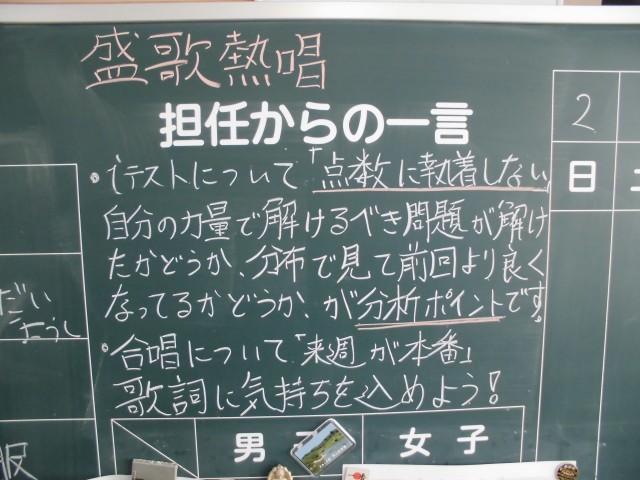 盛歌熱唱
担任からの一言
・iテストについて「点数に執着しない」
自分の力量で解けるべき問題が解け
たかどうか、分布で見て前回より良く
なってるかどうか、が分析ポイントです。
・合唱について「来週が本番」
歌詞に気持ちを込めよう!
男子
女子
2
日
土
だい